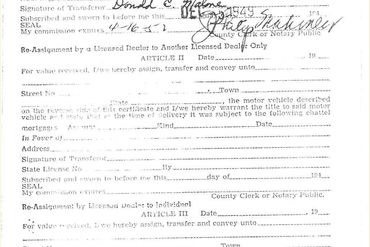 Signature of Transferor Donald C. Malone
Subscribed and sworn to before me this DEC 1949 194
SEAL
My commission expires 4-16-52 County Clerk or Notary Public
Re-Assignment by a Licensed Dealer to Another Licensed Dealer Only
ARTICLE II Date 19
For value received, I/we hereby assign, transfer and convey unto
Street No. , Town
State the motor vehicle described
on the reverse side of this certificate and I/we hereby warrant the title to said motor
vehicle and state that at the time of delivery it was subject to the following chattel
mortgages Amount Kind Date
In Favor of
Address
Signature of Transferor
State License No. By
Subscribed and sworn to before me this day of 194
SEAL
My commission expires County Clerk or Notary Public.
Re-Assignment by Licensed Dealer to Individual
ARTICLE III Date 19
For value received, I/we hereby assign, transfer and convey unto
Town